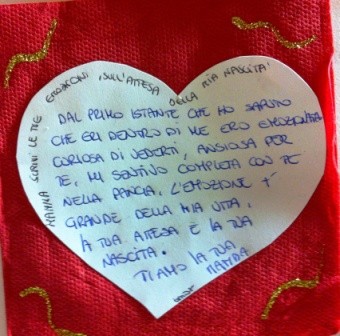 MAMMA SCRIVI LE TUE EMOZIONI SULL'ATTESA DELLA MIA NASCITA'
DAL PRIMO ISTANTE CHE HO SAPUTO
CHE ERI DENTRO DI ME ERO EMOZIONATA
CURIOSA DI VEDERTI, ANSIOSA PER
TE, MI SENTIVO COMPLETA CON TE
NELLA PANCIA. L'EMOZIONE +
GRANDE DELLA MIA VITA.
LA TUA ATTESA E LA TUA
NASCITA.
TI AMO LA TUA
MAMMA